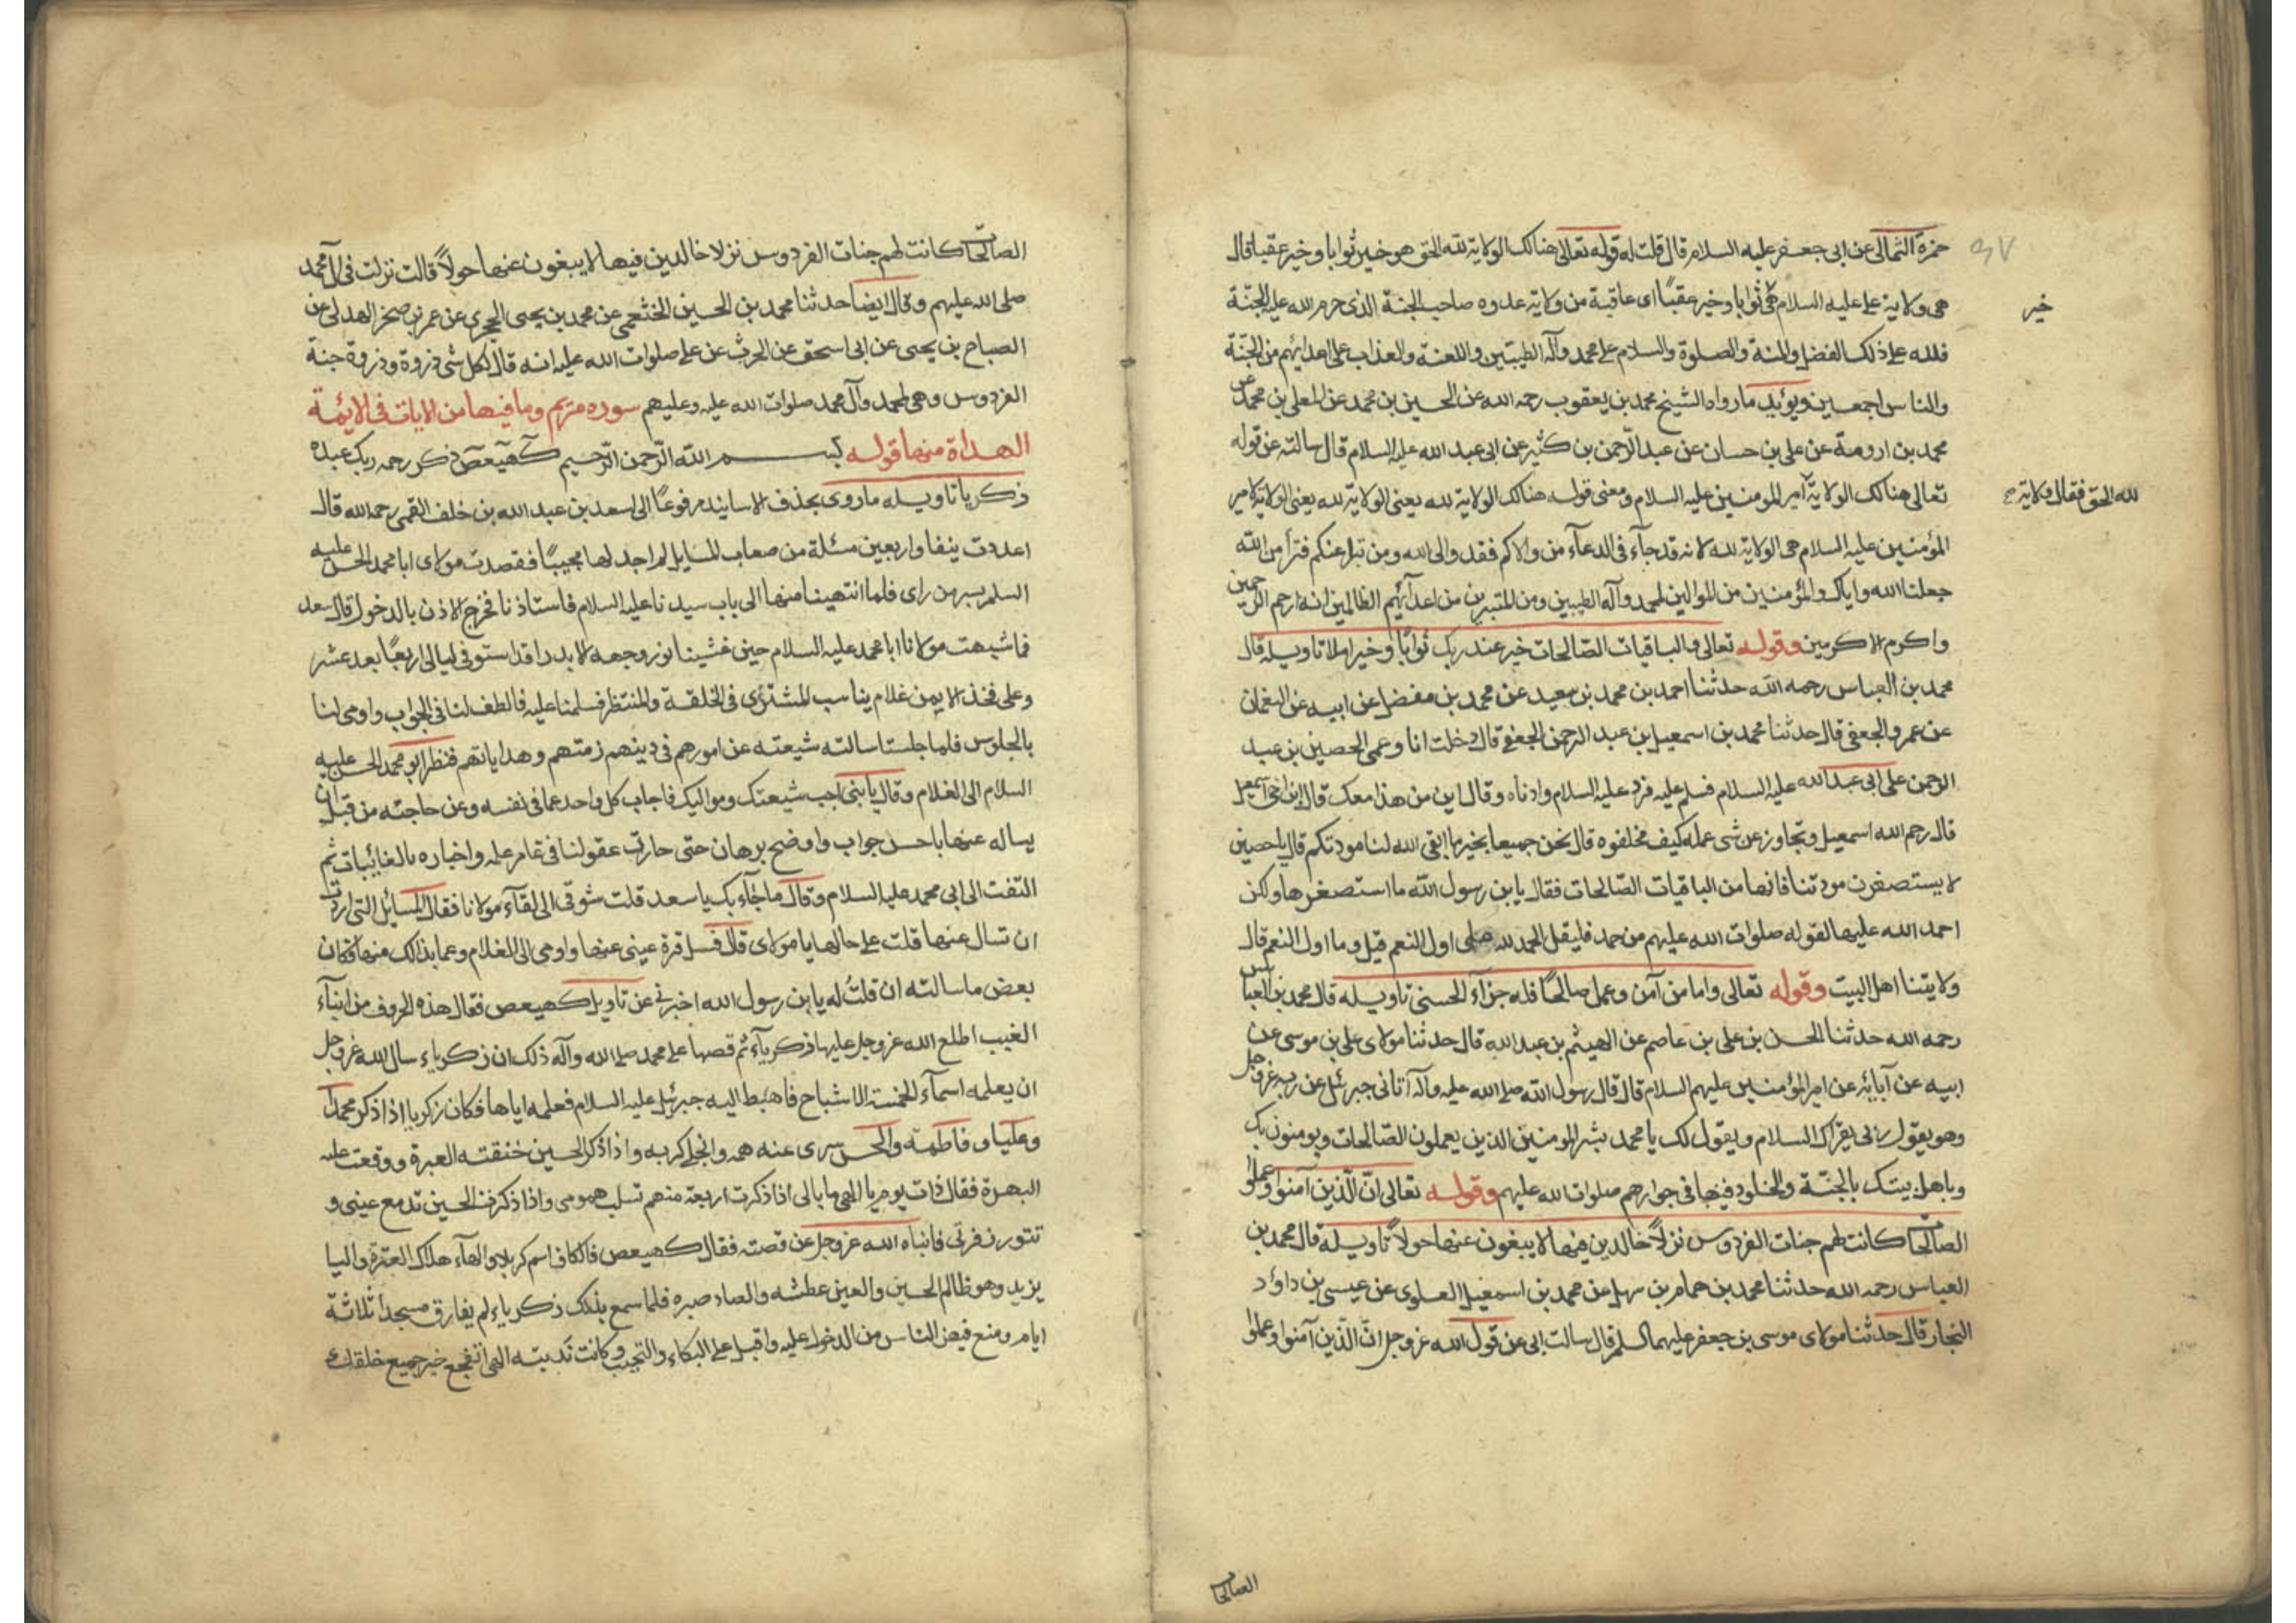 حمزة الثمالى عن ابى جعفر عليه السلام قال قلت له قوله تعالى هنالك الولاية لله الحق هو خير ثوابا وخير عقبا قال
هى ولاية على عليه السلام هى ثوابا وخير عقبًا اى عاقبة من ولاية عدوه صاحب الجنة الذى حرم الله عليه الجنّة
خير
فلله على ذلك الفضل والمنة والصلوة والسلام على محمد وآله الطيبين واللعنة والعذاب على اعدائهم من الجنّة
والناس اجمعين ويؤيد ما رواه الشيخ محمد بن يعقوب رحمه الله عن الحسين بن محمد عن المعلى بن محمد عن
محمد بن ارومة عن على بن حسان عن عبد الرحمن بن كثير عن ابى عبد الله عليه السلام قال سالته عن قوله
تعالى هنالك الولاية امير المومنين عليه السلام ومعنى قوله هنالك الولاية لله يعنى الولاية لله يعنى الولاية لامير
لله الحق فقال ولاية
المؤمنين عليه السلام هى الولاية لله لانه قد جآء فى الدعآء من والاكم فقد والى الله ومن تبرا عنكم فتبرأ من الله
جعلنا الله واياك والمؤمنين من الموالين لمحمد وآله الطيبين ومن المتبرين من اعدآئهم الظالمين انه ارحم الرحمين
واكرم الاكرمين وقوله تعالى والباقيات الصالحات خير عند ربك ثوابًا وخير املا تاويله قال
محمد بن العباس رحمه الله حدثنا احمد بن محمد بن سعيد عن محمد بن مفضل عن ابيه عن النعمان
عن عمرو الجعفى قال حدثنا محمد بن اسمعيل بن عبد الرحمن الجعفى قال دخلت انا وعمى الحصين بن عبد
الرحمن على ابى عبد الله عليه السلام فسلم عليه فرد عليه السلام وادناه وقال ابن من هذا معك قال ابن اخى اسمعيل
قال رحم الله اسمعيل وتجاوز عن شى عمله كيف مخلفوه قال نحن جميعا بخير ما ابقى الله لنا مودتكم قال يا حصين
لا يستصغرن مودتنا فانها من الباقيات الصّالحات فقال يا بن رسول الله ما استصغرها ولكن
احمد الله عليها لقوله صلوات الله عليهم من حمد فليقل الحمد لله على اول النعم قيل وما اول النعم قال
ولايتنا اهل البيت وقوله تعالى واما من آمن وعمل صالحًا فله جزآء الحسنى تاويله قال محمد بن العباس
رحمه الله حدثنا الحسن بن على بن عاصم عن الهيثم بن عبد الله قال حدثنا مولاى على بن موسى عن
ابيه عن آبائه عن امير المؤمنين عليهم السلام قال قال رسول الله صلى الله عليه وآله اتانى جبرئيل عن ربه عز وجل
وهو يقول ربى يقرأك السلام ويقول لك يا محمد بشر المومنين الذين يعملون الصّالحات ويومنون بك
وباهل بيتك بالجنّة والخلود فيها فى جوارهم صلوات الله عليهم وقوله تعالى انّ الّذين آمنوا وعملوا
الصّالحات كانت لهم جنات الفردوس نزلاً خالدين فيها لا يبغون عنها حولاً تاويله قال محمد بن
العباس رحمه الله حدثنا محمد بن همام بن سهل عن محمد بن اسمعيل العلوى عن عيسى بن داؤد
النجار قال حدثنا مولاى موسى بن جعفر عليهما السلم قال سالت ابى عن قول الله عز وجل انّ الّذين آمنوا وعملوا
الصالحات
الصالحات كانت لهم جنات الفردوس نزلا خالدين فيها لا يبغون عنها حولاً قالت نزلت فى آل محمد
صلى الله عليهم وقال ايضا حدثنا محمد بن الحسين الخثعمى عن محمد بن يحيى الحجرى عن عمر بن صخر الهدلى عن
الصباح بن يحيى عن ابى اسحق عن الحرث عن على صلوات الله عليه انه قال لكل شى ذروة وذروة جنة
الفردوس وهى لمحمد وآل محمد صلوات الله عليه وعليهم سوره مريم وما فيها من الايات فى الايئمة
الهداة منها قوله بسم الله الرّحمن الرّحيم كهيعص ذكر رحمه ربك عبده
ذكريا تاويله ما روى بحذف الاسانيد مرفوعًا الى سعد بن عبد الله بن خلف القمى رحمه الله قال
اعددت ينفا واربعين مسئلة من صعاب المسايل لم اجد لها مجيبًا فقصدت مولاى ابا محمد الحسن عليه
السلم بسر من راى فلما انتهينا منها الى باب سيدنا عليه السلام فاستاذنا فخرج الاذن بالدخول قال سعد
فما شبهت مولانا ابا محمد عليه السلام حين غشينا نور وجهه الا بدرا قد استوفى ليالى اربعًا بعد عشر
وعلى فخذ الايمن غلام يناسب المشترى فى الخلقة والمنتظر فسلمنا عليه فالطف لنا فى الجواب واومى لنا
بالجلوس فلما جلسنا سالته شيعته عن امورهم فى دينهم زمتهم وهداياتهم فنظر ابو محمد الحسن عليه
السلام الى الغلام وقال يا بنى اجب شيعتك ومواليك فاجاب كل واحد عما فى نفسه وعن حاجته من قبل ان
يساله عنها باحسن جواب واوضح برهان حتى حارت عقولنا فى غامر علمه واخباره بالغائبات ثم
التفت الى ابى محمد عليه السلام وقال ما جآء بك يا سعد قلت شوقى الى لقآء مولانا فقال المسائل التى اردت
ان تسال عنها قلت على حالها يا مولاى قال فسل قرة عينى عنها واومى الى الغلام وعما بذالك منها فكان
بعض ما سالته ان قلتُ له يا بن رسول الله اخبرنى عن تاويل كهيعص فقال هذه الحروف من انباء
الغيب اطلع الله عز وجل عليها ذكرياء ثم قصها على محمد صلى الله وآله ذلك ان ذكرياء سال الله عز وجل
ان يعلمه اسمآء الخمسة الاشباح فاهبط اليه جبرئيل عليه السلام فعلمه اياها فكان زكريا اذا ذكر محمدًا
وعليا وفاطمة والحسن سرى عنه همه وانجلى كربه واذا ذكر الحسين خنقته العبرة ووقعت عليه
البهرة فقال ذات يوم يا الهى ما بالى اذا ذكرت اربعة منهم تسلب همومى واذا ذكرت الحسين تدمع عينى و
تثور زفرتى فانباه الله عز وجل عن قصته فقال كهيعص فالكاف اسم كربلا والهآء هلاك العترة واليا
يزيد وهو ظالم الحسين والعين عطشه والصاد صبره فلما سمع بذلك ذكرياء لم يفارق مسجدا ثلاثة
ايام ومنع فيهن الناس من الدخول عليه واقبل على البكاء والنحيب وكانت ندبته الهى اتفجع خير جميع خلقك